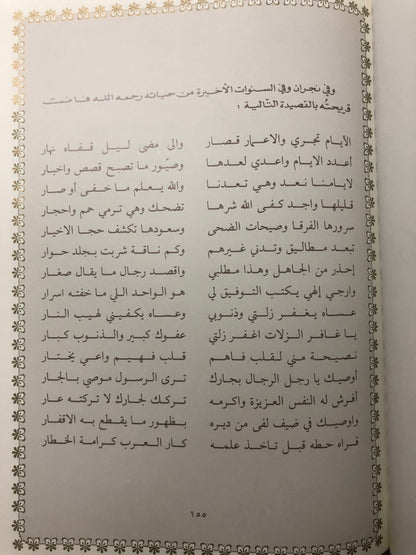 وفي نجران وفي السنوات الأخيرة من حياته رحمه الله فاضت
قريحته بالقصيدة التالية :
الأيام تجري والاعمار قصار والى مضى ليل قفاه نهار
أعدد الايام واعدي لعدها وصيور ما تصبح قصص واخبار
لايامنا نعد وهي تعدنا والله يعلم ما خفى أو صار
قليلها واجد كفى الله شرها تضحك وهي ترمي حمم واحجار
سرورها الفرقا وصيحات الضحى وسعودها تكشف حجا الاخيار
تبعد مطاليق وتدني غيرهم وكم ناقة شربت بجلد حوار
إحذر من الجاهل وهذا مطلبي واقصد رجال ما يقال صغار
وارجي إلهي يكتب التوفيق لي هو الواحد اللي ما خفته اسرار
عساه يغفر زلتي وذنوبي وعساه يكفيني لهيب النار
يا غافر الزلات اغفر زلتي عفوك كبير والذنوب كبار
نصيحة مني لقلب فاهم قلب فهيم واعي يختار
أوصيك يا رجل الرجال بجارك ترى الرسول موصي بالجار
أفرش له النفس العزيزة واكرمه تركك لجارك لا تركته عار
واوصيك في ضيف لفى من ديره بظهور ما يقطع به الاقفار
قراه حطه قبل تاخذ علمه كار العرب كرامة الخطار
١٥٥